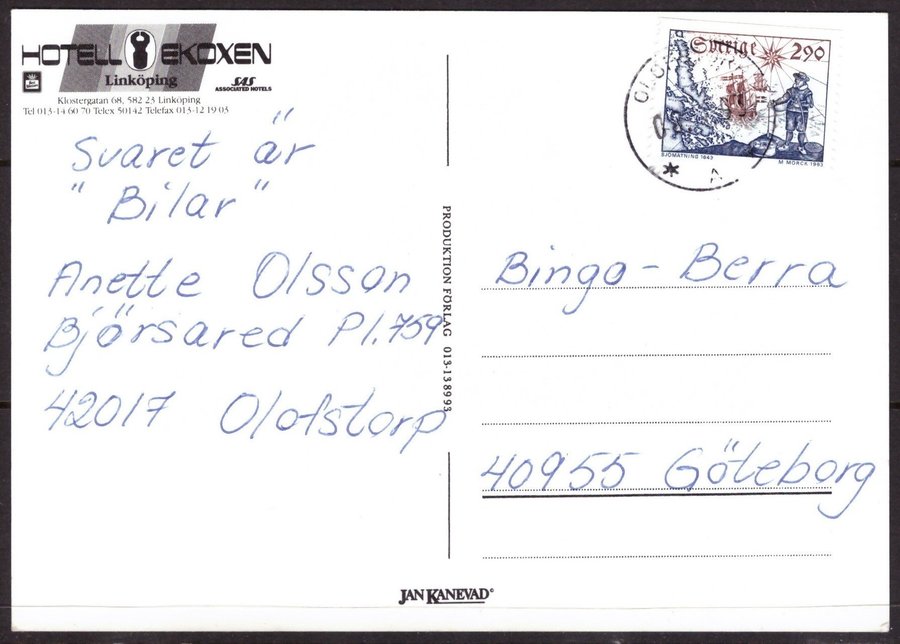 HOTELL EKOXEN
Linköping
SAS
ASSOCIATED HOTELS
Klostergatan 68, 582 23 Linköping
Tel 013-14 60 70 Telex 50142 Telefax 013-12 19 03
Svaret är
"Bilar"
Anette Olsson
Björsared Pl.759
42017 Olofstorp
PRODUKTION FÖRLAG 013-138993
Sverige 290
SJÖMÄTNING 1643
M MÖRCK 1983
Bingo-Berra
40955 Göteborg
JAN KANEVAD©